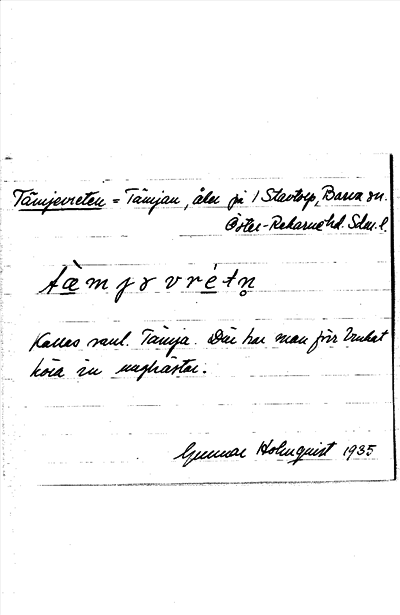 Tämjevreten = Tämjan, åker på 1 Stavtorp, Barva sn.
Öster-Rekarne hd. Sdm. l.
tæ̀mjɤ vrétn̥
Kallas vanl. Tämja. Där har man förr brukat
köra in unghästar.
Gunnar Holmquist 1935